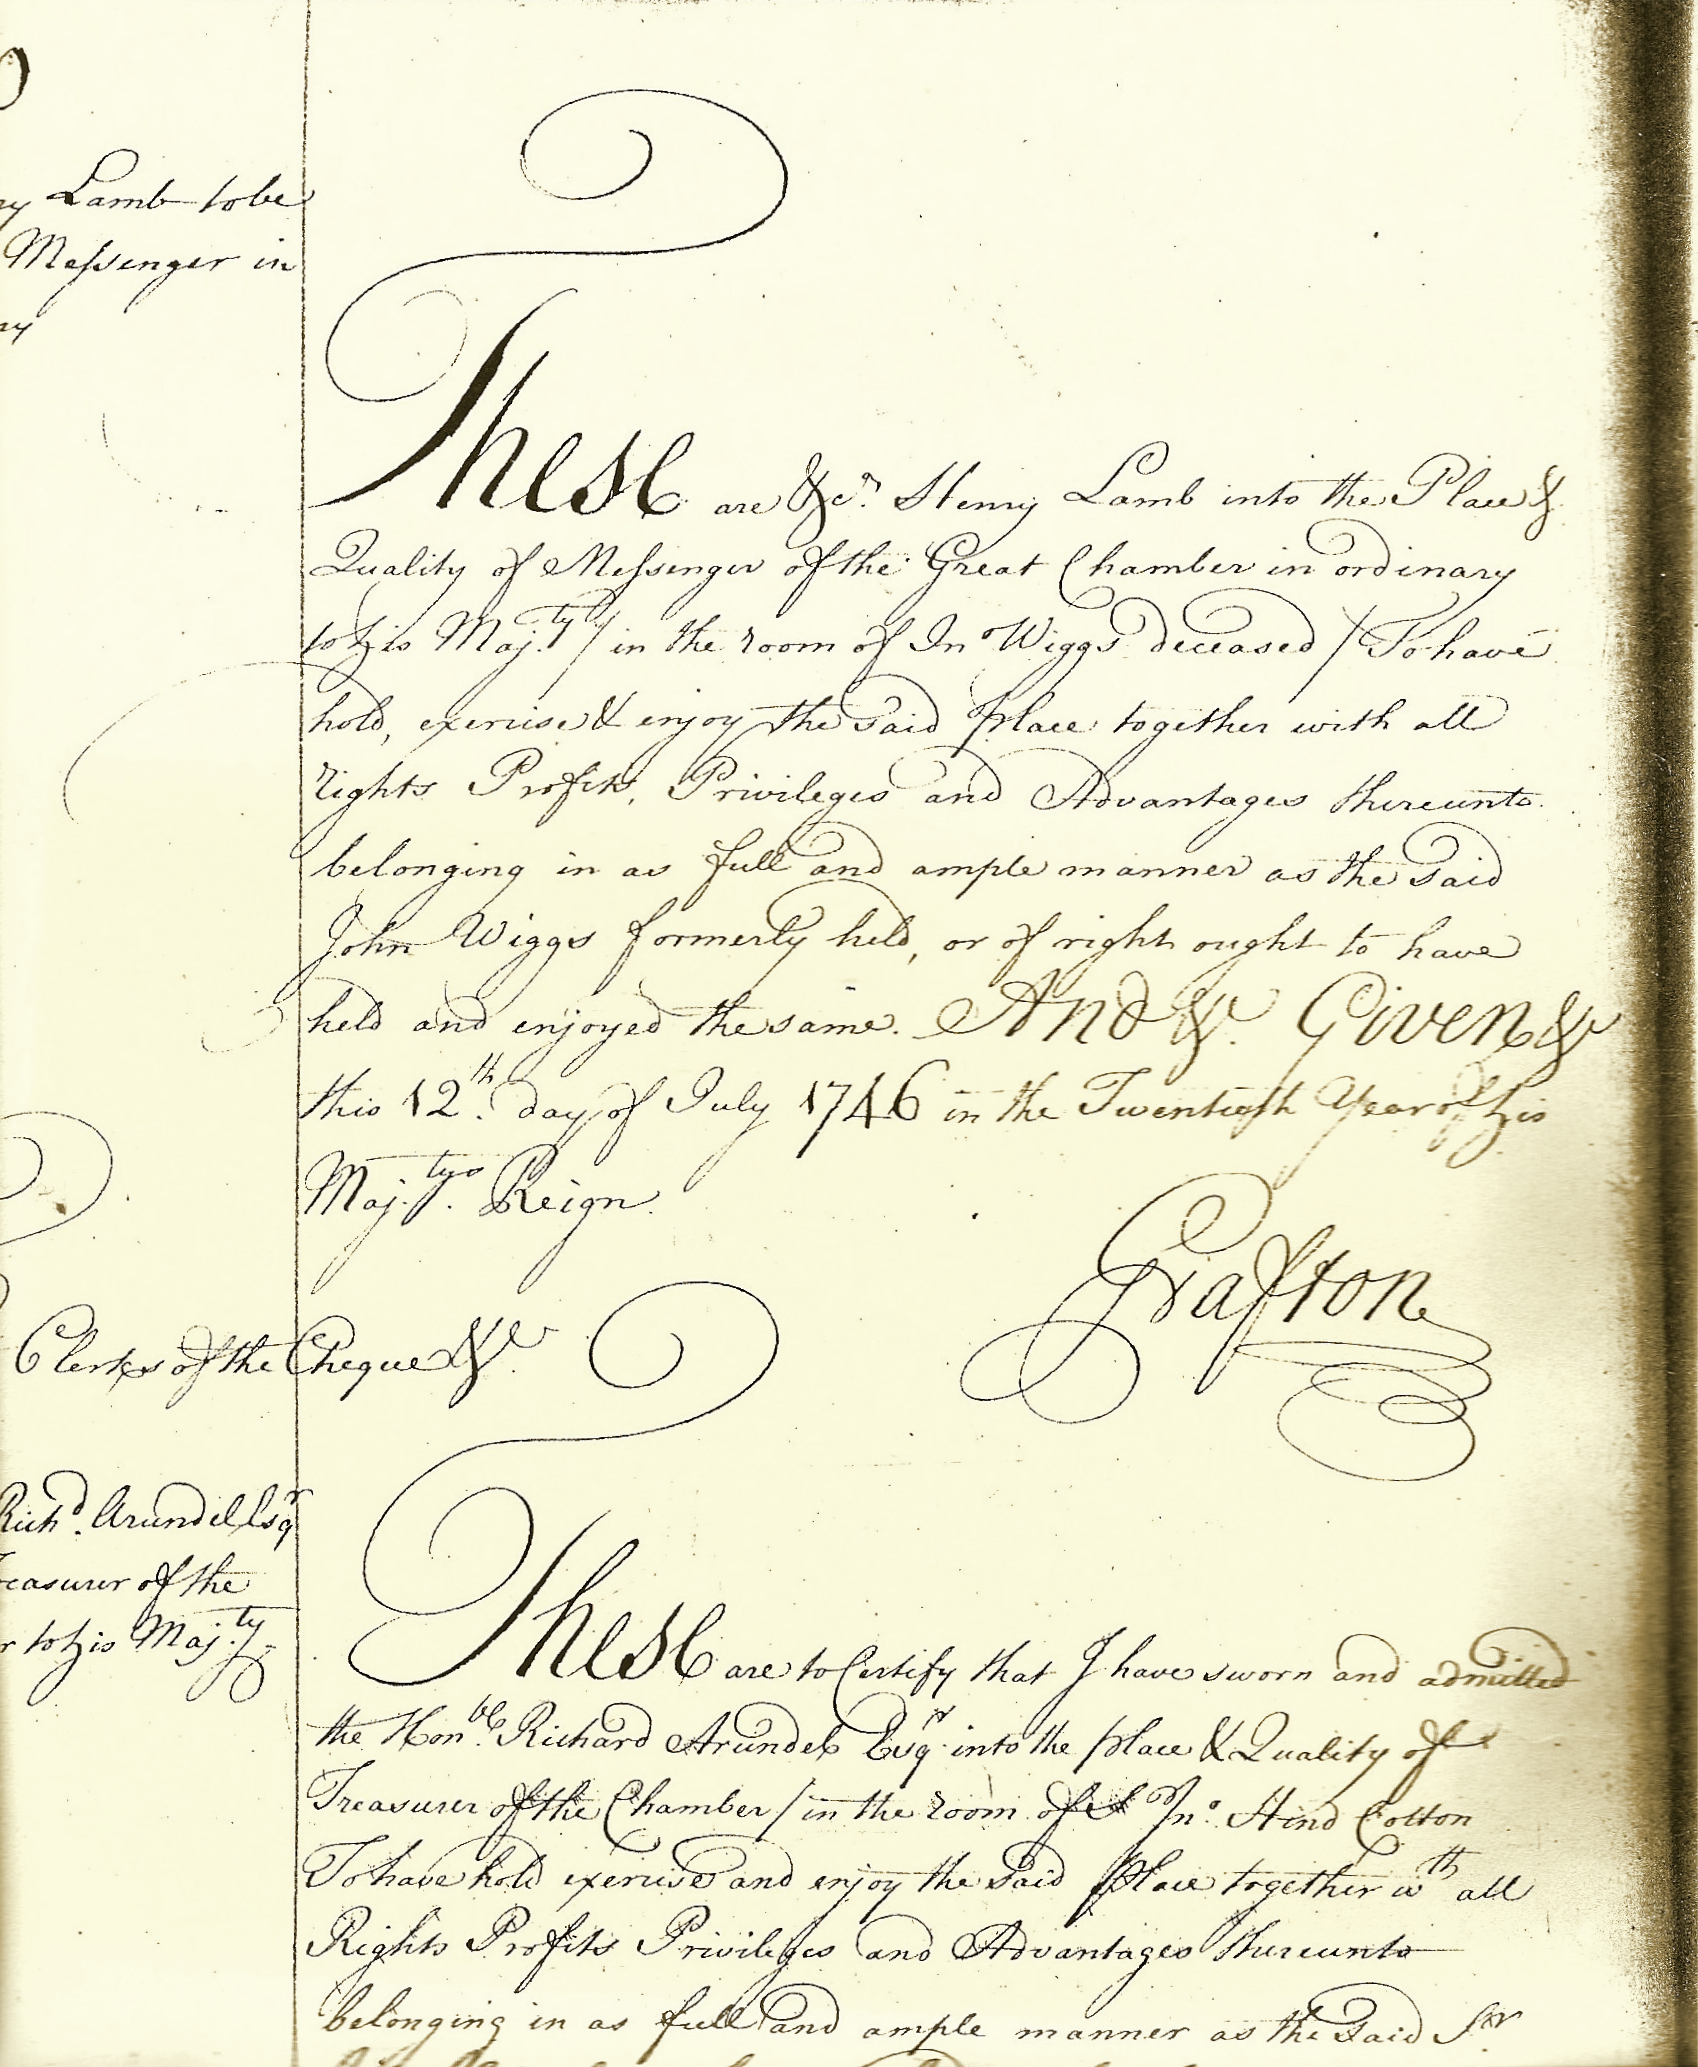 Lamb to be
Messenger in
These are &c.ª Henry Lamb into the Place &
Quality of Messenger of the Great Chamber in ordinary
to his Maj.ty / in the room of Jnº Wiggs deceased / To have
hold, exercise & enjoy the said place together with all
rights Profits, Privileges and Advantages thereunto
belonging in as full and ample manner as the said
John Wiggs formerly held, or of right ought to have
held and enjoyed the same. And &c. Given &c
this 12.th day of July 1746 in the Twentieth Year of his
Maj.tys Reign.
Grafton
Clerks of the Cheque &c.
Rich.d Arundel Esq.r
reasurer of the
r to his Maj.ty
These are to Certify that I have sworn and admitted
the Hon.ble Richard Arundel Esq.r into the place & Quality of
Treasurer of the Chamber / in the room of Sr Jn.º Hind Cotton
To have hold exercise and enjoy the said Place together w.th all
Rights Profits Privileges and Advantages thereunto
belonging in as full and ample manner as the said Sr.